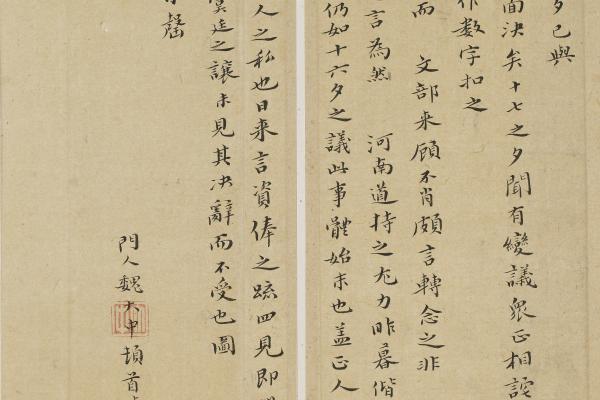 夕已與
面決矣十七之夕聞有變議眾正相詫
作數字扣之
而 文部来顧不肖頗言轉念之非
言為然 河南道持之尤力昨暮偕
仍如十六夕之議此事體始末也盖正人
人之私也日来言資俸之疏四見即
廷之讓未見其決辭而不受也圖
罄
門人魏大中頓首